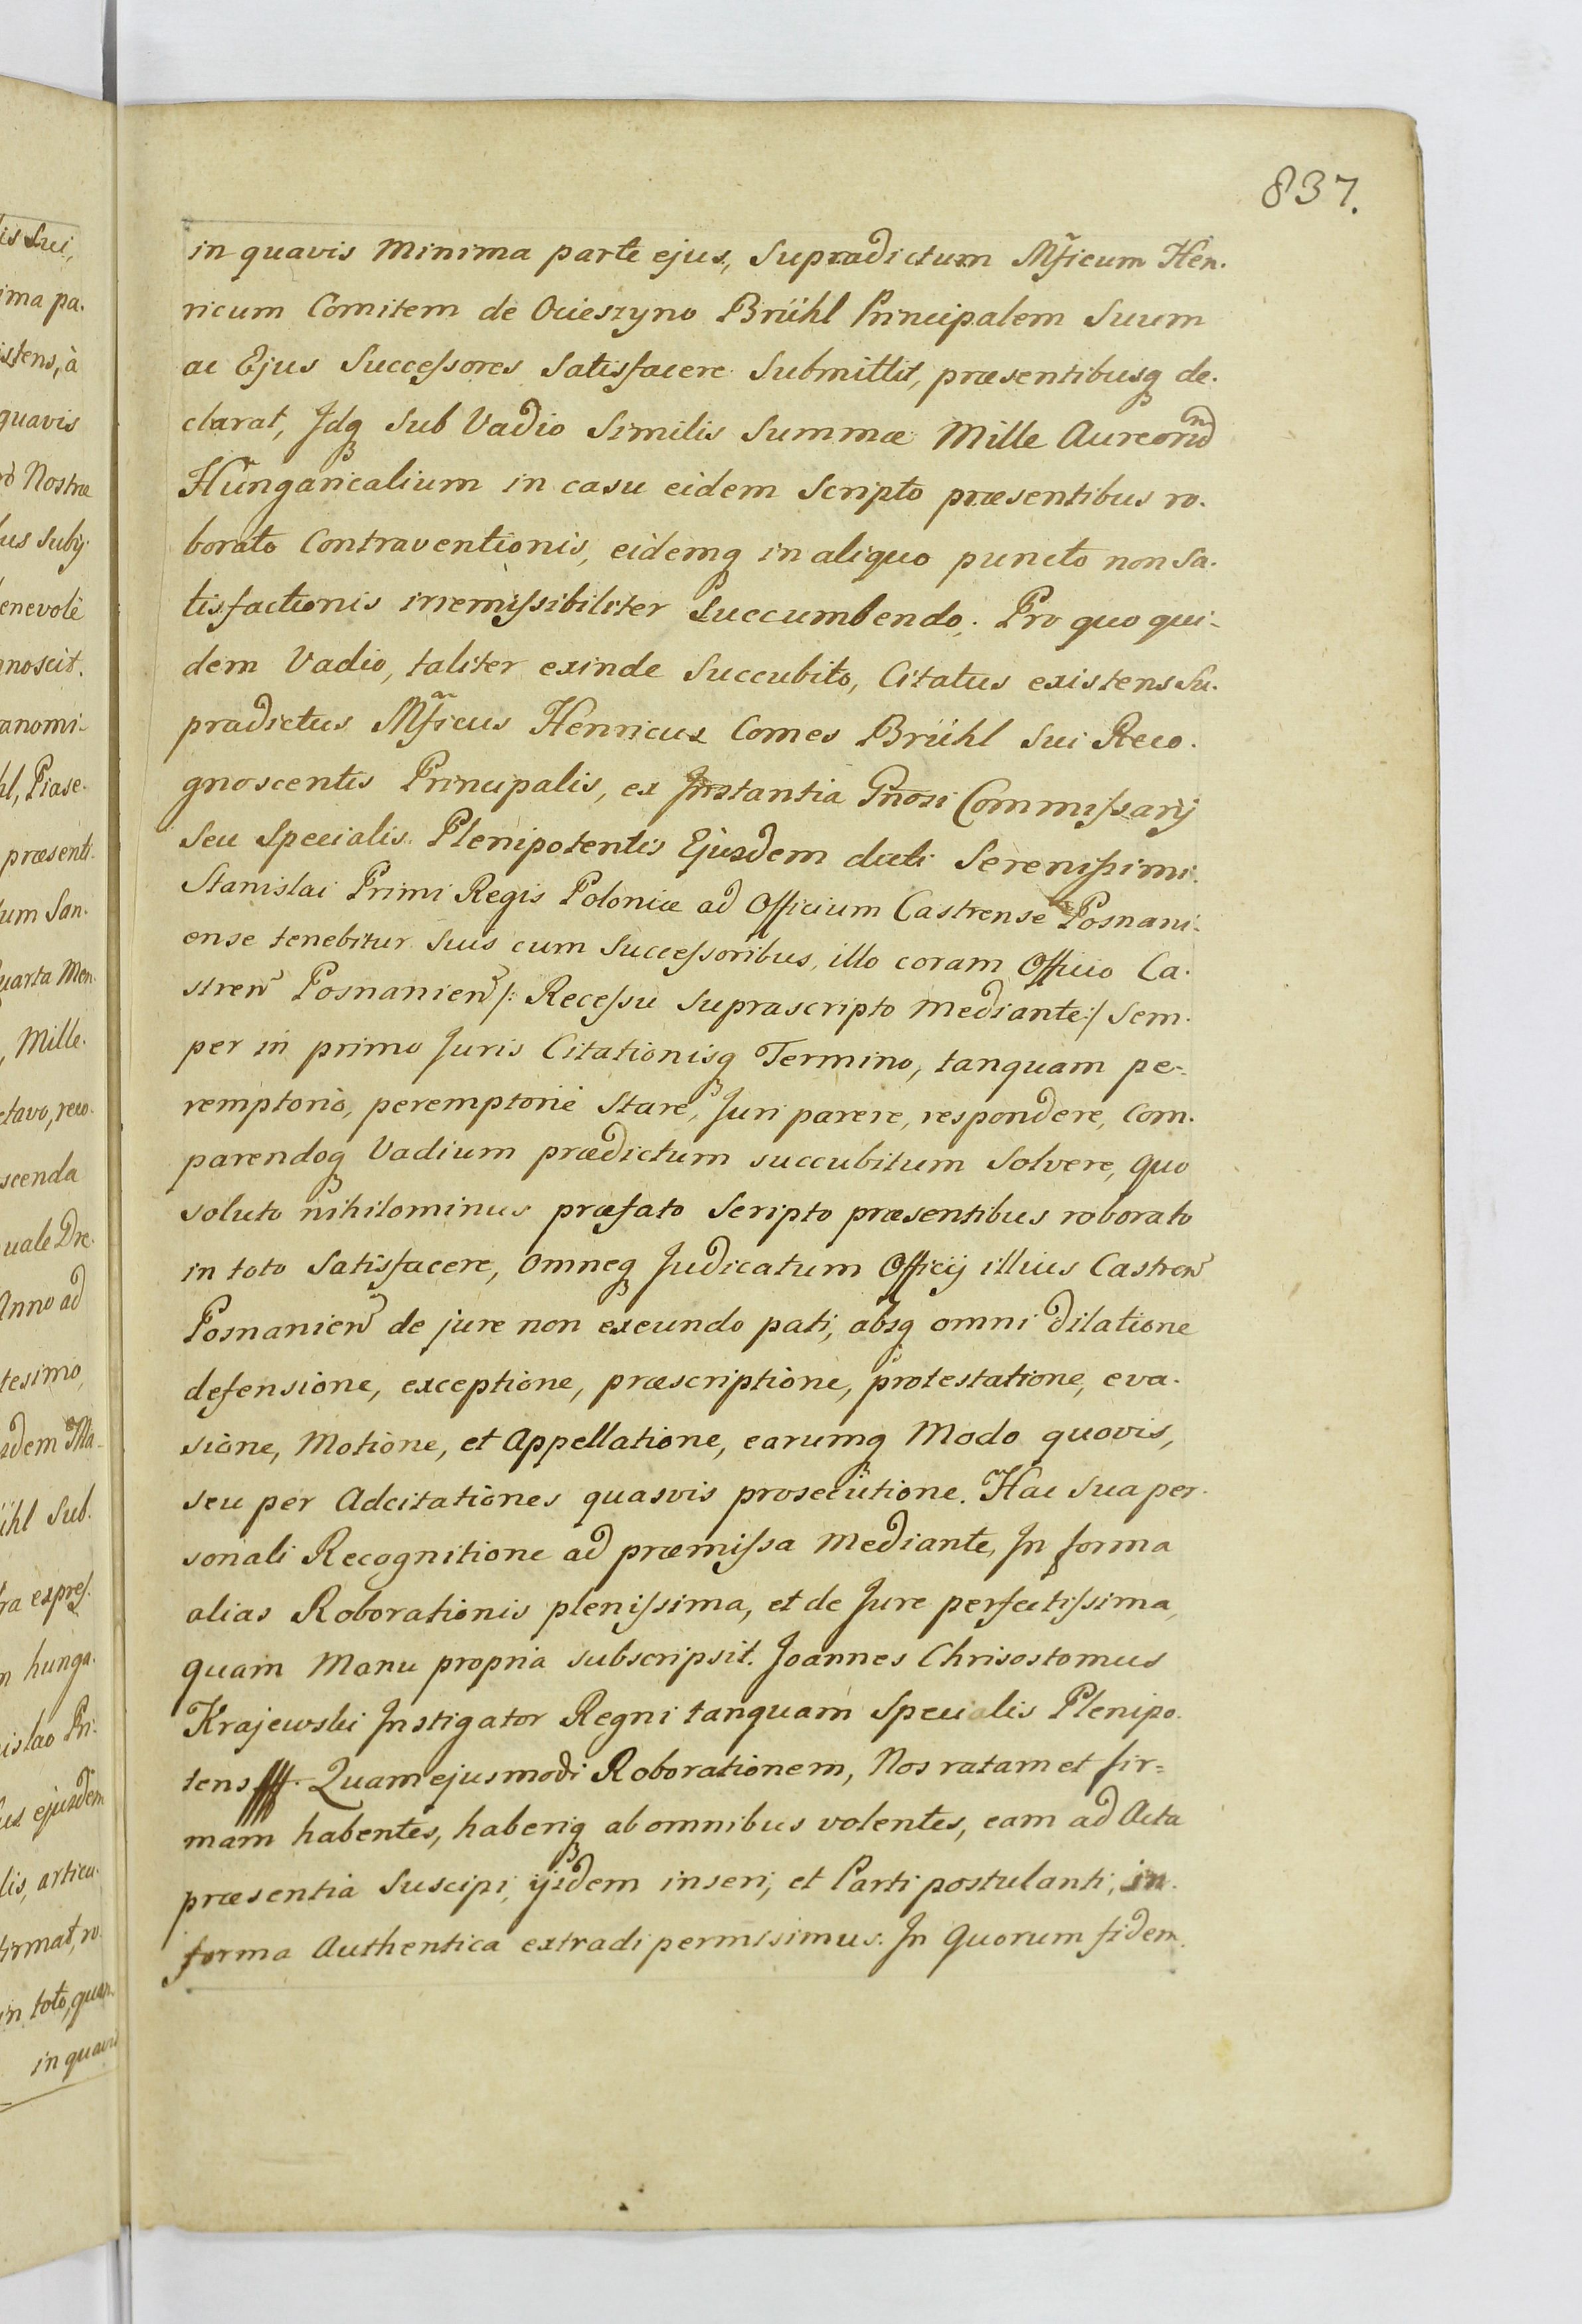 837.
in quavis Minima parte ejus, Supradictum Mficum Hen.
ricum Comitem de Ocieszyno Brühl Principalem Suum
ac Ejus Successores Satisfacere Submittit, præsentibusq de.
clarat, Idq Sub Vadio Similis Summæ Mille Aureorũ
Hungaricalium in casu eidem Scripto præsentibus ro.
borato Contraventionis, eidemq in aliquo puncto non Sa.
tisfactionis irremissibiliter Succumbendo. Pro quo qui-
dem Vadio, taliter exinde Succubito, Citatus existens Su.
pradictus Mficus Henricus Comes Brühl Sui Reco.
gnoscentis Principalis, ex Instantia Gnosi Commissarij
Seu Specialis Plenipotentis Ejusdem dicti Serenissimi
Stanislai Primi Regis Poloniæ ad Officium Castrense Posnani-
ense tenebitur Suis cum Successoribus, illo coram Officio Ca.
streñ Posnanieñ /: Recessu Suprascripto Mediante :/ Sem.
per in primo Juris Citationisq Termino, tanquam pe-
remptorio, peremptoriè Stare, Juri parere, respondere, Com.
parendoq Vadium prædictum succubitum Solvere, quo
soluto nihilominus præfato Scripto præsentibus roborato
in toto Satisfacere, Omneq Judicatum Officij illius Castreñ
Posnanieñ de jure non exeundo pati, absq omni dilatione
defensione, exceptione, præscriptione, protestatione, eva.
sione, Motione, et Appellatione, earumq Modo quovis,
seu per Adcitationes quasvis prosecutione. Hac Sua per.
sonali Recognitione ad præmissa Mediante, In forma
alias Roborationis plenissima, et de Jure perfectissima,
quam Manu propria subscripsit. Joannes Chrisostomus
Krajewski Instigator Regni tanquam Specialis Plenipo.
tens. Quam ejusmodi Roborationem, Nos ratam et fir=
mam habentes, haberiq ab omnibus volentes, eam ad Acta
præsentia Suscipi, ijsdem inseri, et Parti postulanti, in
forma Authentica extradi permisimus. In Quorum fidem.